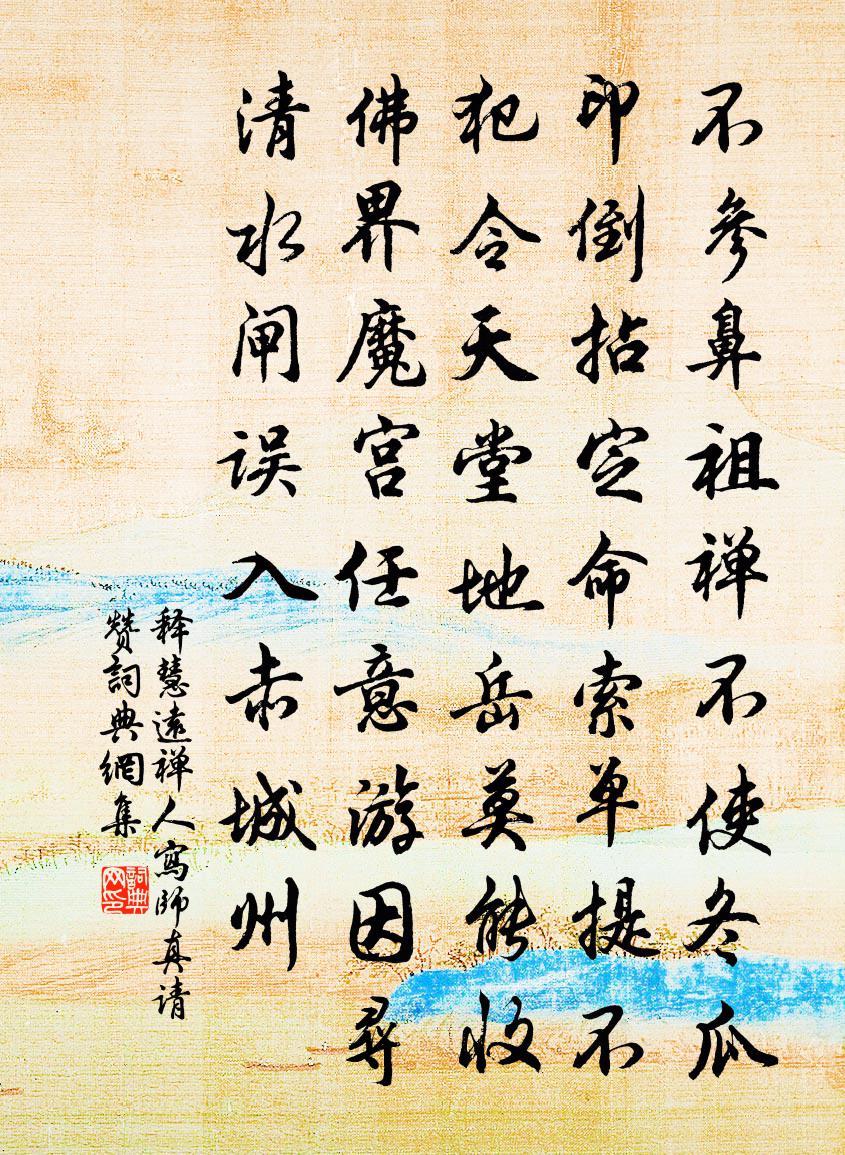 不参鼻祖禅不使冬瓜
印倒拈定命索单提不
犯令天堂地岳莫能收
佛界魔宫任意游因寻
清水闸误入赤城州
释慧远禅人寫師真请
赞詞典網集
詞典
网印